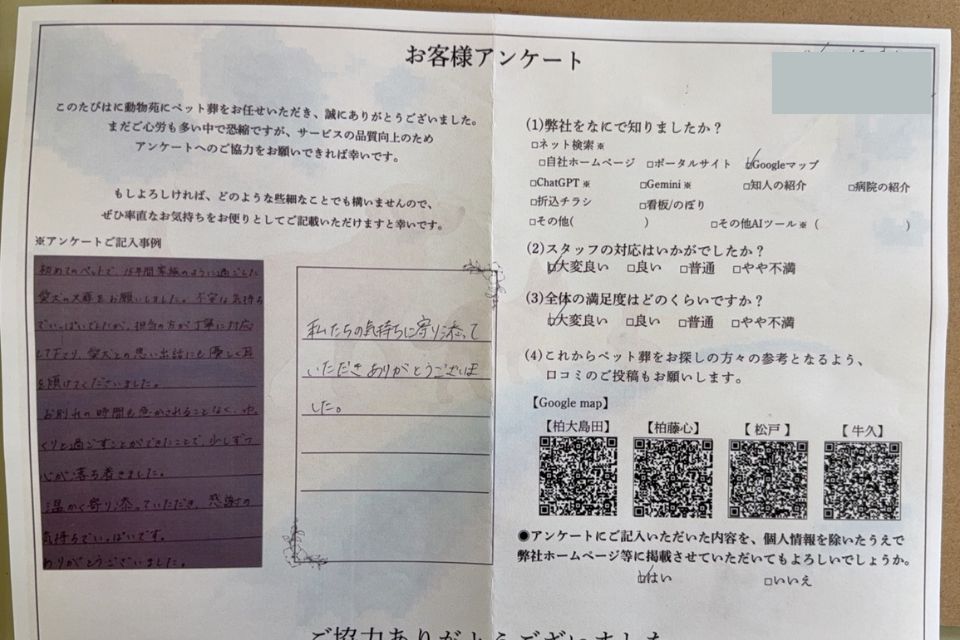 お客様アンケート
このたびはに動物苑にペット葬をお任せいただき、誠にありがとうございました。
まだご心労も多い中で恐縮ですが、サービスの品質向上のため
アンケートへのご協力をお願いできれば幸いです。
もしよろしければ、どのような些細なことでも構いませんので、
ぜひ率直なお気持ちをお便りとしてご記載いただけますと幸いです。
※アンケートご記入事例
初めてのペットで、15年間家族のように過ごした
愛犬の火葬をお願いしました。不安な気持ち
でいっぱいでしたが、担当の方が丁寧に対応
して下さり、愛犬との思い出話にも優しく耳
を傾けてくださいました。
お別れの時間も急かされることなく、ゆっ
くりと過ごすことができたことで、少しずつ
心が落ち着きました。
温かく寄り添っていただき、感謝の
気持ちでいっぱいです。
ありがとうございました。
私たちの気持ちに寄り添って
いただきありがとうございま
した。
(1)弊社をなにで知りましたか？
□ネット検索※
□自社ホームページ □ポータルサイト ☑Googleマップ
□ChatGPT※ □Gemini※ □知人の紹介 □病院の紹介
□折込チラシ □看板/のぼり
□その他( ) □その他AIツール※（ ）
(2)スタッフの対応はいかがでしたか？
☑大変良い □良い □普通 □やや不満
(3)全体の満足度はどのくらいですか？
☑大変良い □良い □普通 □やや不満
(4)これからペット葬をお探しの方々の参考となるよう、
口コミのご投稿もお願いします。
【Google map】
【柏大島田】 【柏藤心】 【 松戸 】 【 牛久】
●アンケートにご記入いただいた内容を、個人情報を除いたうえで
弊社ホームページ等に掲載させていただいてもよろしいでしょうか。
☑はい □いいえ
ご協力ありがとうございました